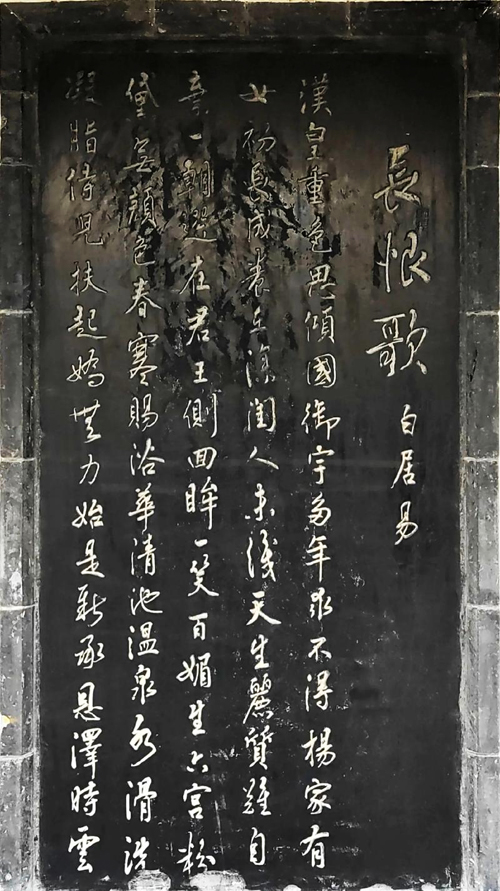 長恨歌 白居易
漢皇重色思傾國御宇多年求不得楊家有
女初長成養在深閨人未識天生麗質難自
棄一朝選在君王側回眸一笑百媚生六宮粉
黛無顏色春寒賜浴華清池溫泉水滑洗
凝脂侍兒扶起嬌無力始是新承恩澤時雲